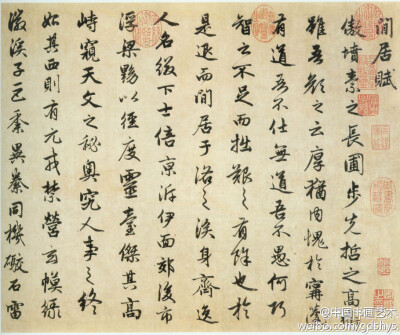 閒居賦
傲墳素之長圃步先哲之高衢
雖吾顏之云厚猶內愧於甯蘧
有道吾不仕無道吾不愚何巧
智之不足而拙艱之有餘也於
是退而閒居于洛之涘身齊逸
人名綴下士倍京泝伊面郊後市
浮梁黝以徑度靈臺傑其高
峙窺天文之秘奧究人事之終
始其西則有元戎禁營玄幙綠
徽溪子巨黍異絭同機礮石雷
@中国书画艺术